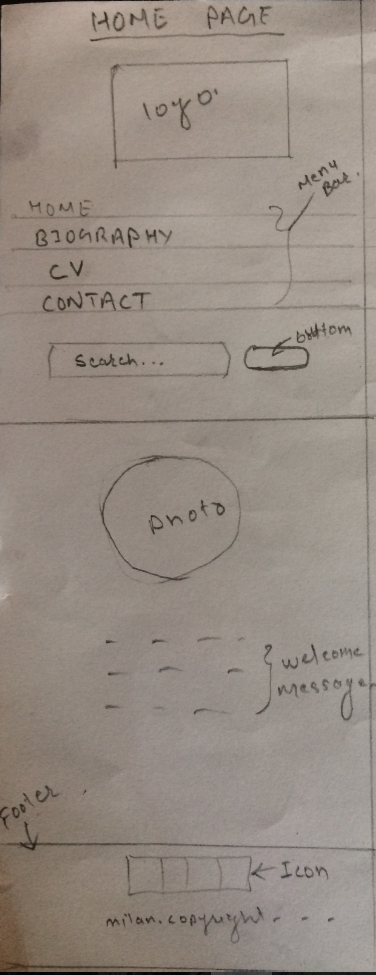 HOME PAGE
logo
Menu
Bar.
HOME
BIOGRAPHY
CV
CONTACT
bottom
Search...
photo
welcome
message
Footer
Icon
milan.copyright. - - -